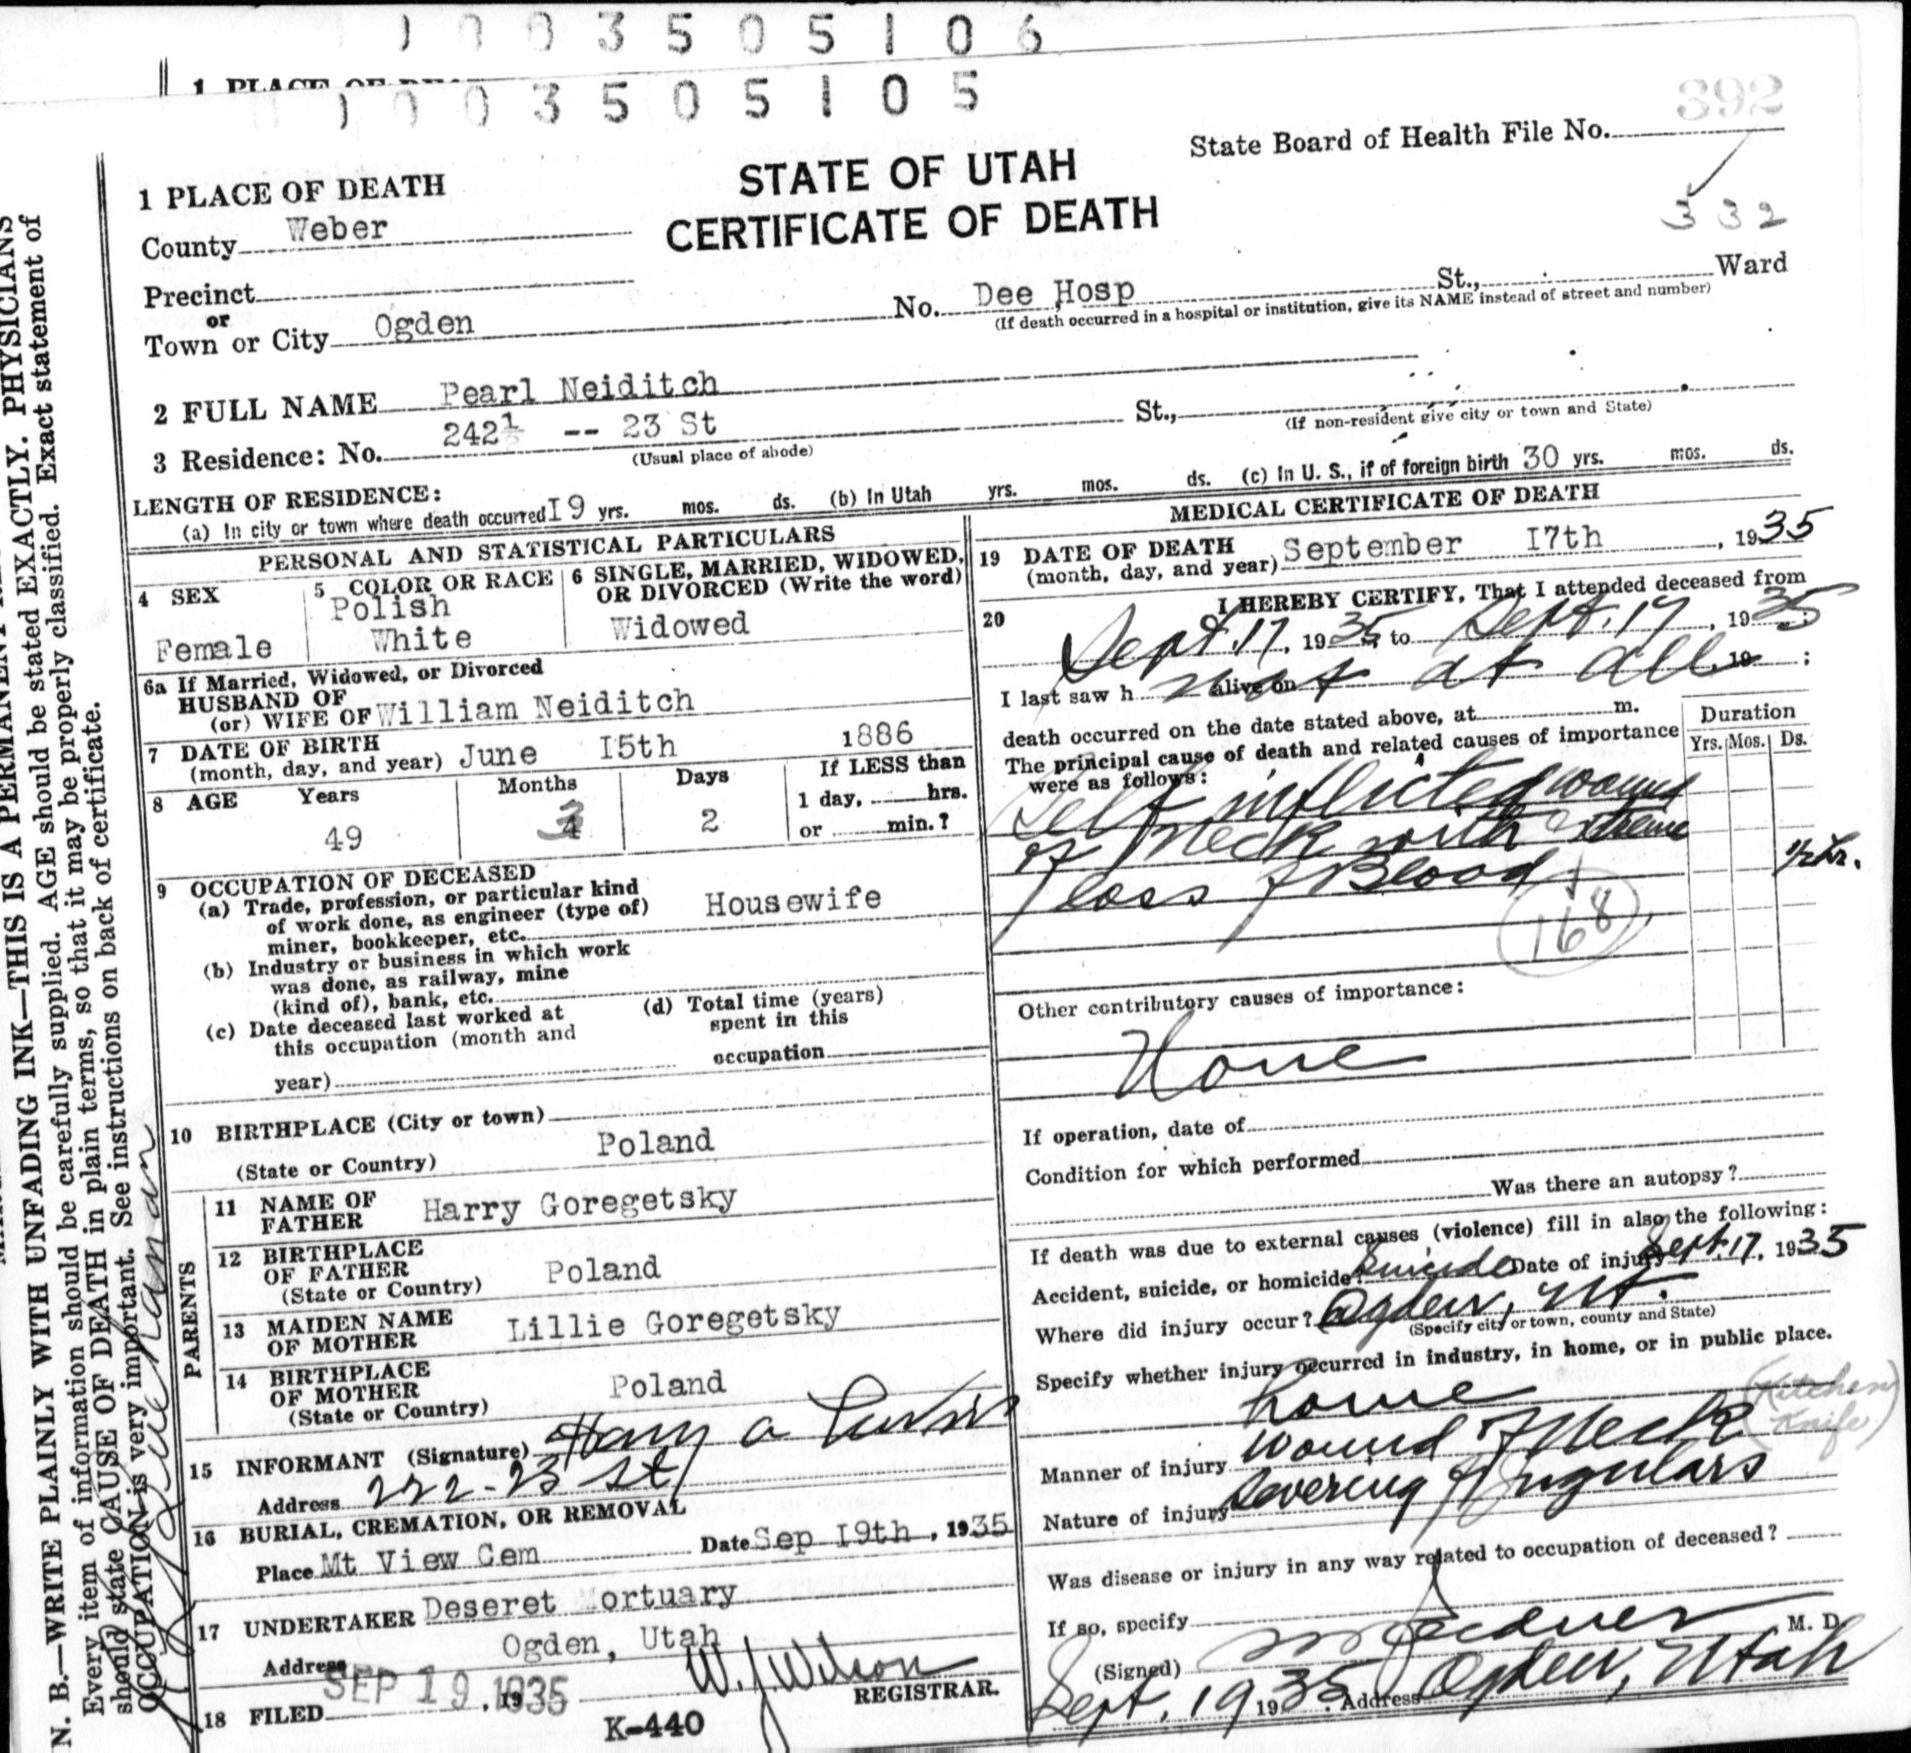 1003505106
1 PLACE OF DEA
1003505105
392
State Board of Health File No.
332
STATE OF UTAH
CERTIFICATE OF DEATH
1 PLACE OF DEATH
County Weber
Precinct
or
Town or City Ogden
No. Dee Hosp St., Ward
(If death occurred in a hospital or institution, give its NAME instead of street and number)
2 FULL NAME Pearl Neiditch
3 Residence: No. 242½ -- 23 St St.,
(Usual place of abode)
(If non-resident give city or town and State)
LENGTH OF RESIDENCE:
(a) In city or town where death occurred I9 yrs. mos. ds. (b) In Utah yrs. mos. ds. (c) In U. S., if of foreign birth 30 yrs. mos. ds.
PERSONAL AND STATISTICAL PARTICULARS
4 SEX
Female
5 COLOR OR RACE
Polish
White
6 SINGLE, MARRIED, WIDOWED,
OR DIVORCED (Write the word)
Widowed
6a If Married, Widowed, or Divorced
HUSBAND OF
(or) WIFE OF William Neiditch
7 DATE OF BIRTH
(month, day, and year) June I5th 1886
8 AGE Years Months Days
49 3 2
If LESS than
1 day, hrs.
or min.?
9 OCCUPATION OF DECEASED
(a) Trade, profession, or particular kind
of work done, as engineer (type of)
miner, bookkeeper, etc.
Housewife
(b) Industry or business in which work
was done, as railway, mine
(kind of), bank, etc.
(c) Date deceased last worked at
this occupation (month and
year)
(d) Total time (years)
spent in this
occupation
10 BIRTHPLACE (City or town)
(State or Country) Poland
PARENTS
11 NAME OF
FATHER Harry Goregetsky
12 BIRTHPLACE
OF FATHER
(State or Country) Poland
13 MAIDEN NAME
OF MOTHER Lillie Goregetsky
14 BIRTHPLACE
OF MOTHER
(State or Country) Poland
15 INFORMANT (Signature) Harry A
Address 222-23 St
16 BURIAL, CREMATION, OR REMOVAL
Place Mt View Cem Date Sep I9th, 1935
17 UNDERTAKER Deseret Mortuary
Address Ogden, Utah
18 FILED SEP 19 1935, 19
W. J. Wilson
REGISTRAR.
K-440
MEDICAL CERTIFICATE OF DEATH
19 DATE OF DEATH
(month, day, and year) September I7th, 1935
20 I HEREBY CERTIFY, That I attended deceased from
Sept. 17, 1935, to Sept. 17, 1935;
I last saw h alive on not at all, 19 ;
death occurred on the date stated above, at m.
The principal cause of death and related causes of importance
were as follows:
Duration
Yrs. Mos. Ds.
Self inflicted wound
of Neck with extreme
loss of Blood
½ hr.
168
Other contributory causes of importance:
None
If operation, date of
Condition for which performed
Was there an autopsy?
If death was due to external causes (violence) fill in also the following:
Accident, suicide, or homicide? Suicide Date of injury Sept. 17, 1935
Where did injury occur? Ogden, Ut.
(Specify city or town, county and State)
Specify whether injury occurred in industry, in home, or in public place.
home
(Kitchen
Knife)
Manner of injury wound of Neck
Nature of injury Severing of Jugulars
Was disease or injury in any way related to occupation of deceased?
If so, specify
(Signed) M. D.
Sept. 19 1935. Address Ogden, Utah
N. B.—WRITE PLAINLY WITH UNFADING INK—THIS IS A PERMANENT
Every item of information should be carefully supplied. AGE should be stated EXACTLY. PHYSICIANS
should state CAUSE OF DEATH in plain terms, so that it may be properly classified. Exact statement of
OCCUPATION is very important. See instructions on back of certificate.